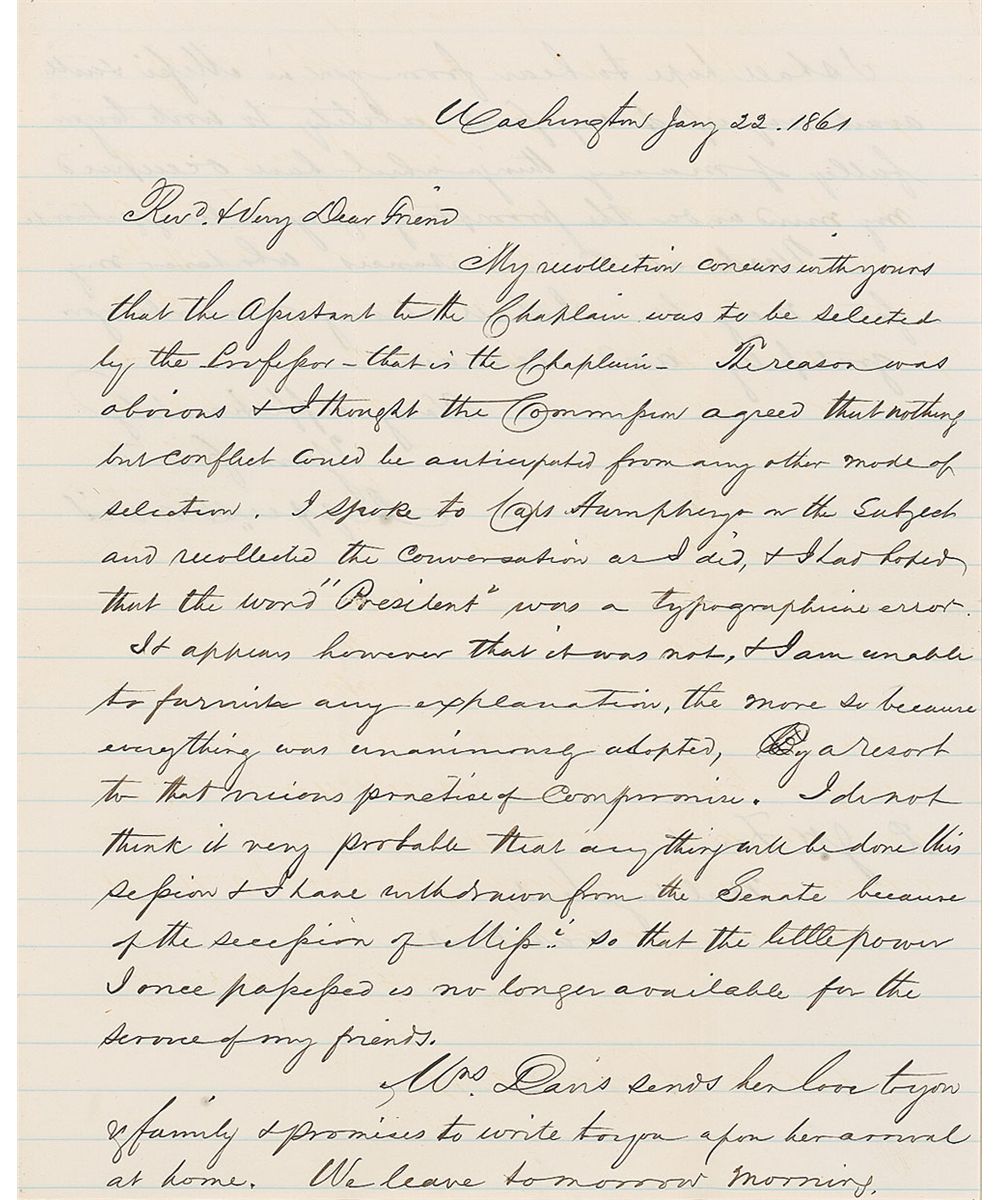 Washington Jany 22. 1861
Revd. & Very Dear Friend
My recollection concurs with yours
that the Assistant to the Chaplain was to be selected
by the Professor - that is the Chaplain - The reason was
obvious & I thought the Commission agreed that nothing
but conflict could be anticipated from any other mode of
selection. I spoke to Capt Humphreys on the subject
and recollected the conversation as I did, & I had hoped
that the word "President" was a typographical error.
It appears however that it was not, & I am unable
to furnish any explanation, the more so because
everything was unanimously adopted, By a resort
to that vicious practise of compromise. I do not
think it very probable that anything will be done this
session & I have withdrawn from the Senate because
of the secession of Missi. so that the little power
I once possessed is no longer available for the
service of my friends.
Mrs. Davis sends her love to you
& family & promises to write to you upon her arrival
at home. We leave tomorrow morning.